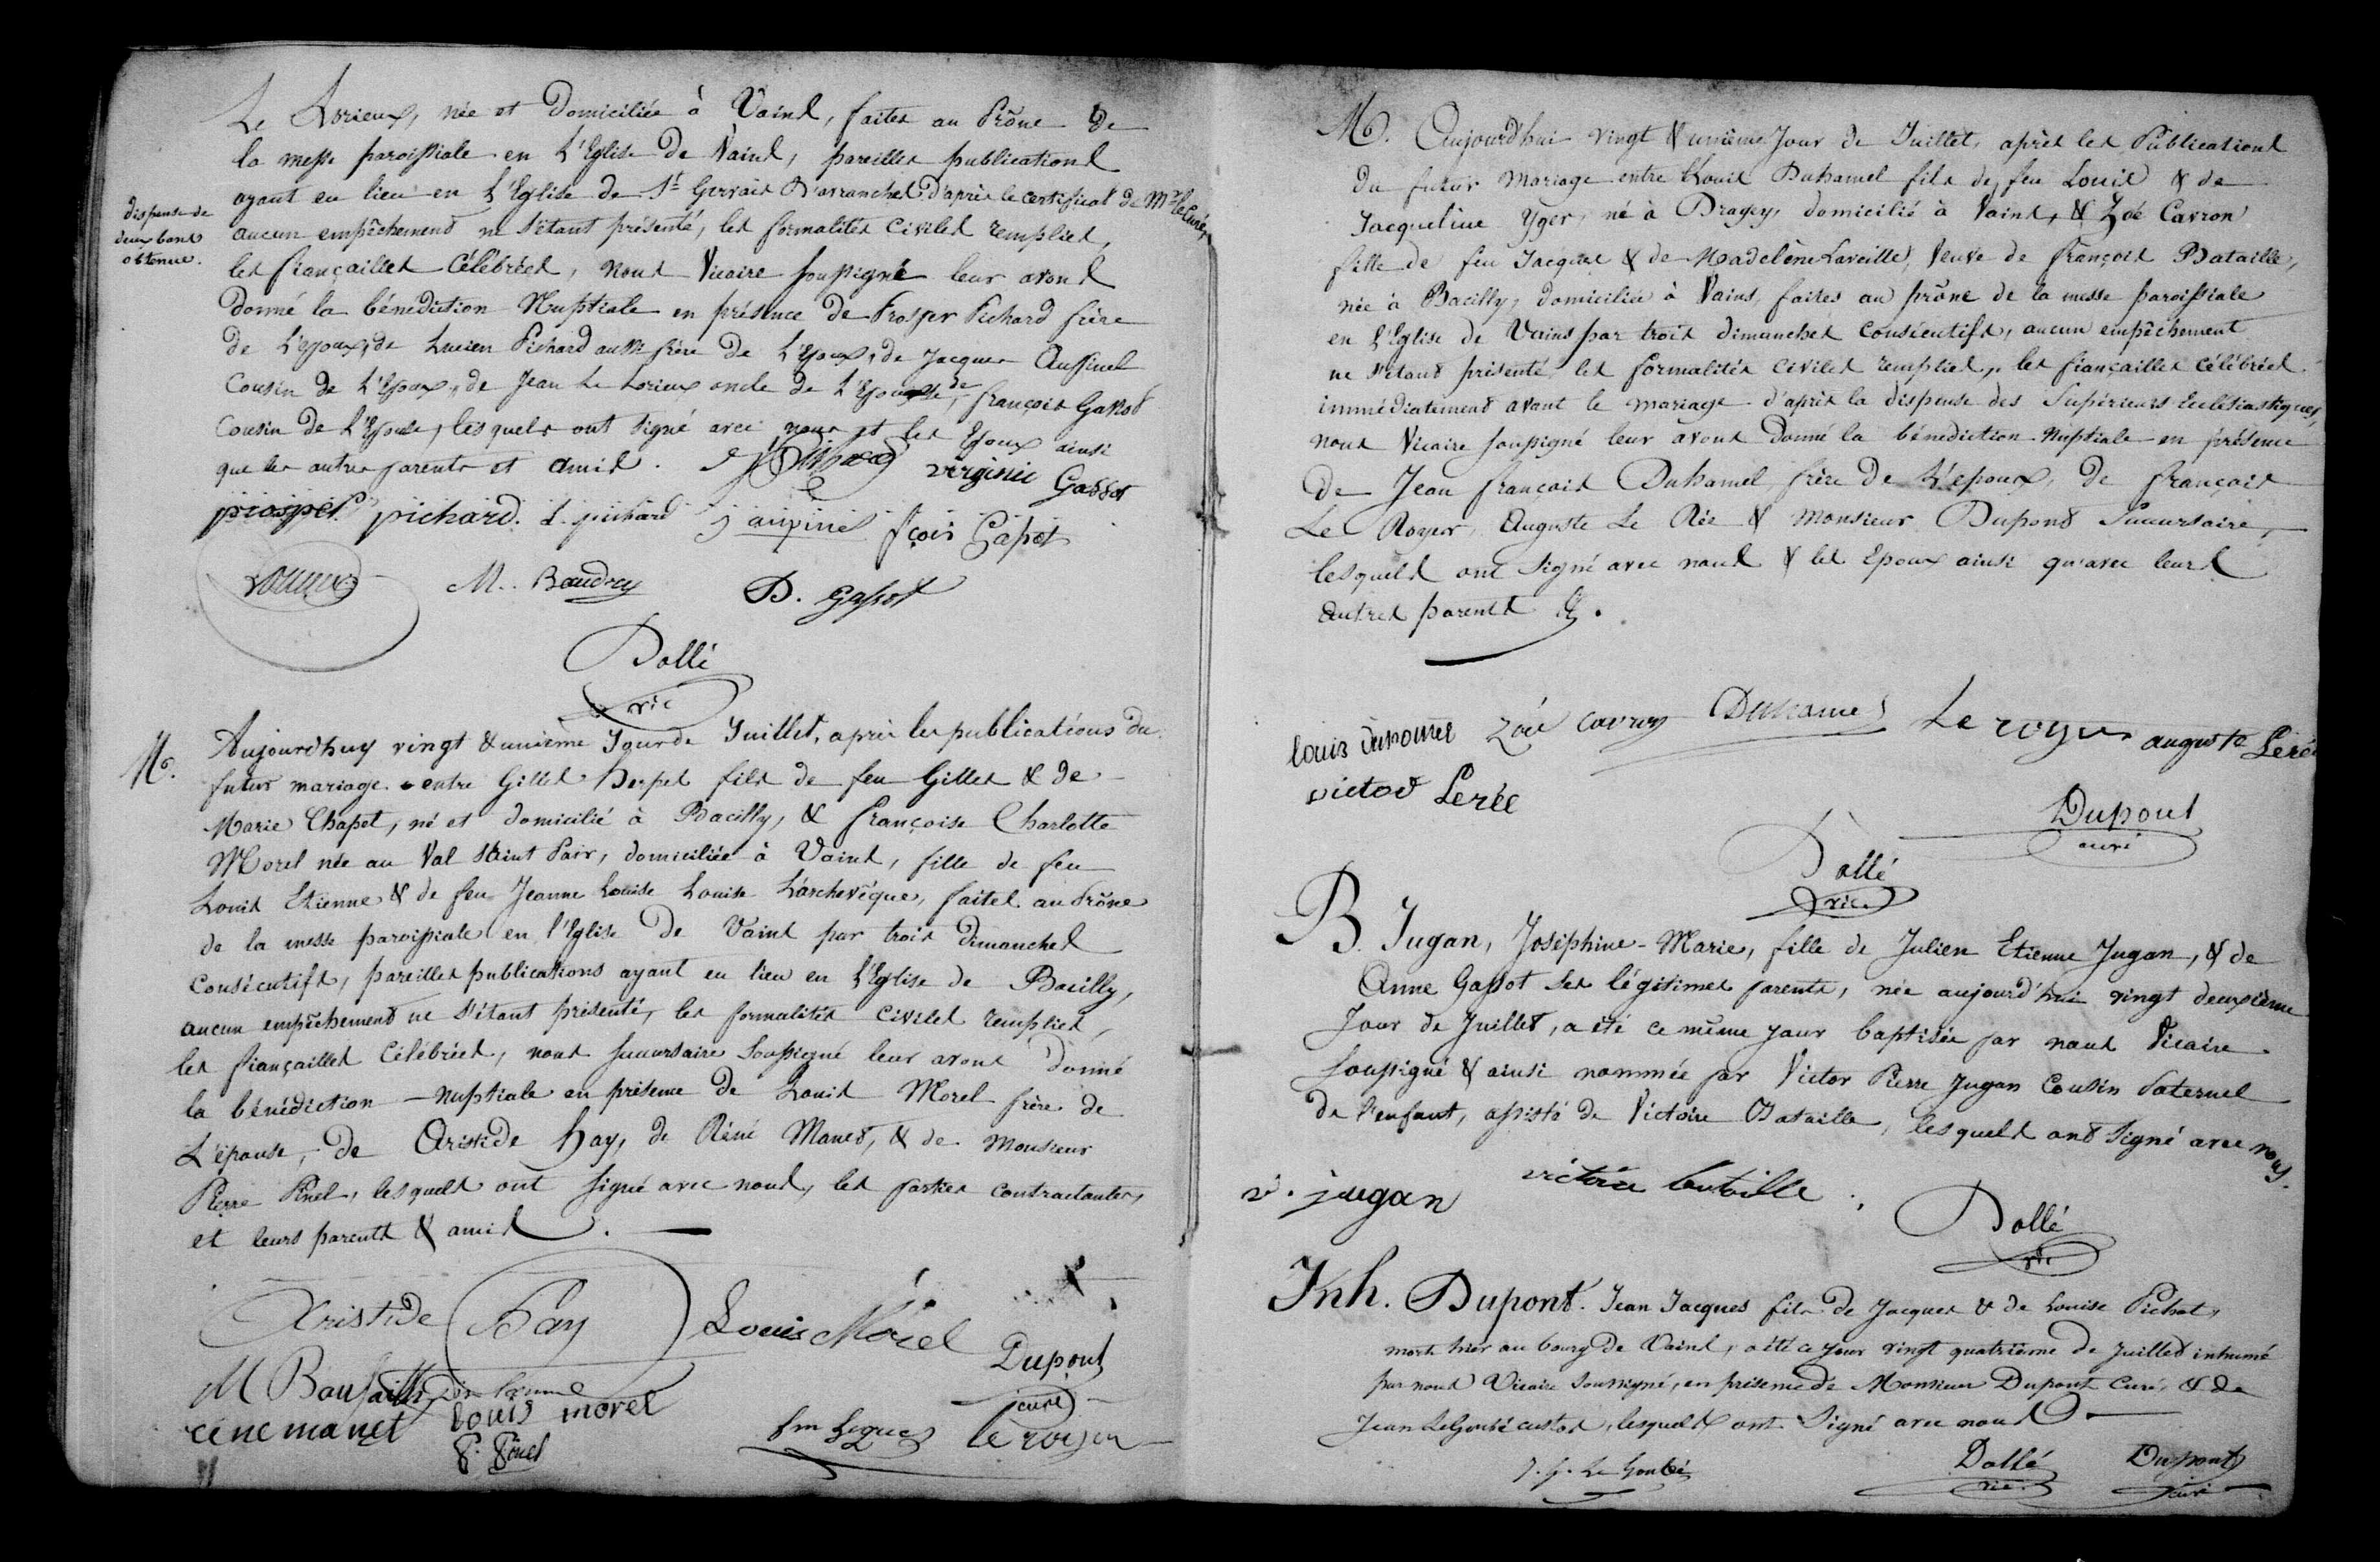 Le Lorieux, née et domiciliée à Vains, faites au Prône de
la messe paroissiale en l'Eglise de Vains, pareilles publications
ayant eu lieu en l'Eglise de St Gervais d'avranches d'après le certificat de Mr le Curé,
dispense de
deux bans
obtenue.
aucun empêchement ne s'étant présenté, les formalités civiles remplies,
les fiançailles célébrées, nous Vicaire soussigné leur avons
donné la bénédiction Nuptiale en présence de Prosper Pichard frère
de l'époux, de Lucien Pichard aussi frère de l'Epoux, de Jacques Aupinel
Cousin de l'Epoux, de Jean Le Lorieux oncle de l'Epouse, de françois Gassot
Cousin de l'Epouse, lesquels ont signé avec nous et les Epoux ainsi
que les autres parents et amis. Pichard virginie Gassot
prosper pichard. L. pichard j aupinel fçois Gassot
M. Baudry D. Gassot
Dollé
vic
M. Aujourd'huy vingt & unième Jour de Juillet, après les publications du
futur mariage entre Gilles Herpel fils de feu Gilles & de
Marie Chapel, né et domicilié à Bacilly, & françoise Charlotte
Morel née au Val Saint Pair, domiciliée à Vains, fille de feu
Louis Etienne & de feu Jeanne Louise Louise Larchevêque, faites au Prône
de la messe paroissiale en l'Eglise de Vains par trois dimanches
consécutifs, pareilles publications ayant eu lieu en l'Eglise de Bacilly,
aucun empêchement ne s'étant présenté, les formalités civiles remplies,
les fiançailles célébrées, nous succursaire soussigné leur avons donné
la bénédiction nuptiale en présence de Louis Morel frère de
L'épouse, de Aristide hay, de Réné Manet, & de Monsieur
Pierre Pinel, lesquels ont signé avec nous, les parties contractantes,
et leurs parents & amis.
Aristide Hay Louis Morel
M Dupont
curé
réné manet louis morel
P. Pinel
le royer
M. Aujourd'hui vingt & unième Jour de Juillet, après les Publications
du futur Mariage entre Louis Duhamel fils de feu Louis & de
Jacqueline Yger, né à Dragey, domicilié à Vains, & Zoé Cavron
fille de feu Jacques & de Madelène Laveille, Veuve de François Bataille,
née à Bacilly, domiciliée à Vains, faites au prône de la messe paroissiale
en l'Eglise de Vains par trois dimanches consécutifs, aucun empêchement
ne s'étant présenté les formalités civiles remplies, les fiançailles célébrées
immédiatement avant le mariage d'après la dispense des Supérieurs Ecclésiastiques,
nous Vicaire soussigné leur avons donné la bénédiction Nuptiale en présence
de Jean françois Duhamel frère de l'époux, de françois
Le Royer, Auguste Le Rée & Monsieur Dupont Succursaire,
lesquels ont signé avec nous & les Epoux ainsi qu'avec leurs
autres parents &.
louis duhamel Zoé cavron Duhamel Le royer auguste Lerée
victor Lerée
Dupont
curé
Dollé
vic.
B. Jugan, Joséphine-Marie, fille de Julien Etienne Jugan, & de
Anne Gassot ses légitimes parents, née aujourd'hui vingt deuxième
Jour de Juillet, a été ce même jour baptisée par nous Vicaire
soussigné & ainsi nommée par Victor Pierre Jugan Cousin Paternel
de l'enfant, assisté de Victoire Bataille, lesquels ont signé avec nous.
v. jugan victoire bataille
Dollé
vic
Inh. Dupont. Jean Jacques fils de Jacques & de Louise Pichot,
mort hier au bourg de Vains, a été ce jour vingt quatrième de Juillet inhumé
par nous Vicaire soussigné, en présence de Monsieur Dupont Curé, & de
Jean LeGoubé custos, lesquels ont Signé avec nous
J. f. Le Goubé Dollé Dupont
vic. curé